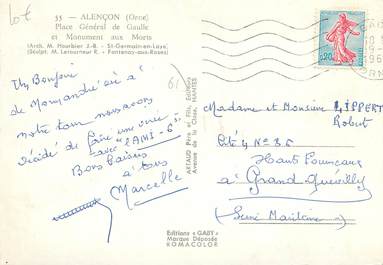 lot
55 - ALENÇON (Orne)
Place Général de Gaulle
et Monument aux Morts
(Arch. M. Hourbier J.-B. - St-Germain-en-Laye)
(Sculpt. M. Letourneur R. - Fontenay-aux-Roses)
Un Bonjour
de Normandie où à
notre tour nous avons
décidé de faire une virée
avec "2 AMI-6"
Bons baisers
à tous
Marcelle
61
ARTAUD Père et Fils, Éditeurs
Avenue de la Close, NANTES
0,20
Madame et Monsieur LIPPERT
Robert
Cité 4 N° 35
Haut Fourneaux
à Grand Quevilly
(Seine Maritime)
Editions "GABY"
Marque Déposée
ROMACOLOR